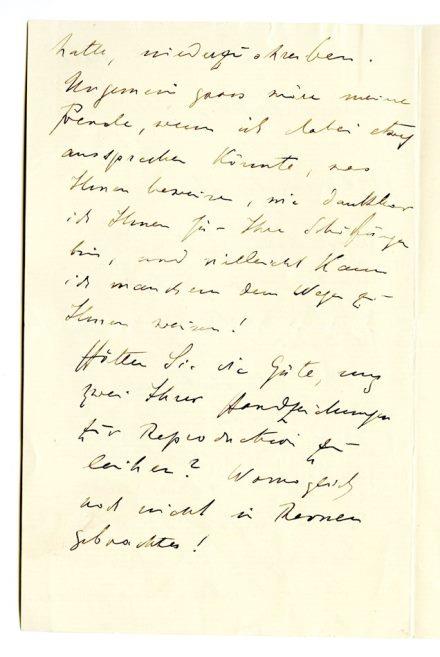 hatte, niederzuschreiben.
Ungemein gross wäre meine
Freude, wenn ich dabei etwas
aussprechen könnte, was
Ihnen beweisen, wie dankbar
ich Ihnen für Ihre Schöpfungen
bin, und vielleicht kann
ich manchem den Weg zu
Ihnen weisen!
Hätten Sie die Güte, uns
zwei Ihrer Handzeichnungen
für Reproduction zu
leihen? Womöglich
noch nicht in Revuen
gebrachtes!